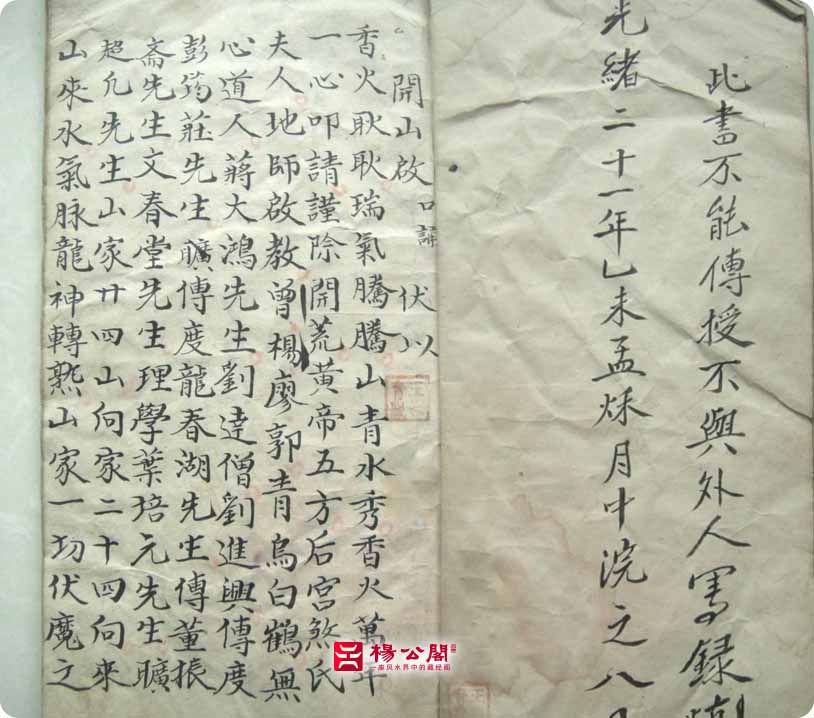 此書不能傳授不與外人寫録
光緒二十一年乙未孟秌月中浣之八
開山啟口誥 伏以
香火耿耿瑞氣騰騰山青水秀香火萬年
一心叩請謹除開荒黄帝五方后宫煞氏
夫人地師啟教曾楊廖郭青烏白鶴無
心道人蔣大鴻先生劉達僧劉進興傳度
彭筠莊先生曠傳度龍春湖先生傳董振
斋先生文春堂先生理學葉培元先生曠
超凢先生山家廿四山向家二十四向來
山來水氣脉龍神轉熟山家一切伏魔之
楊公閣
一座风水界中的藏经阁